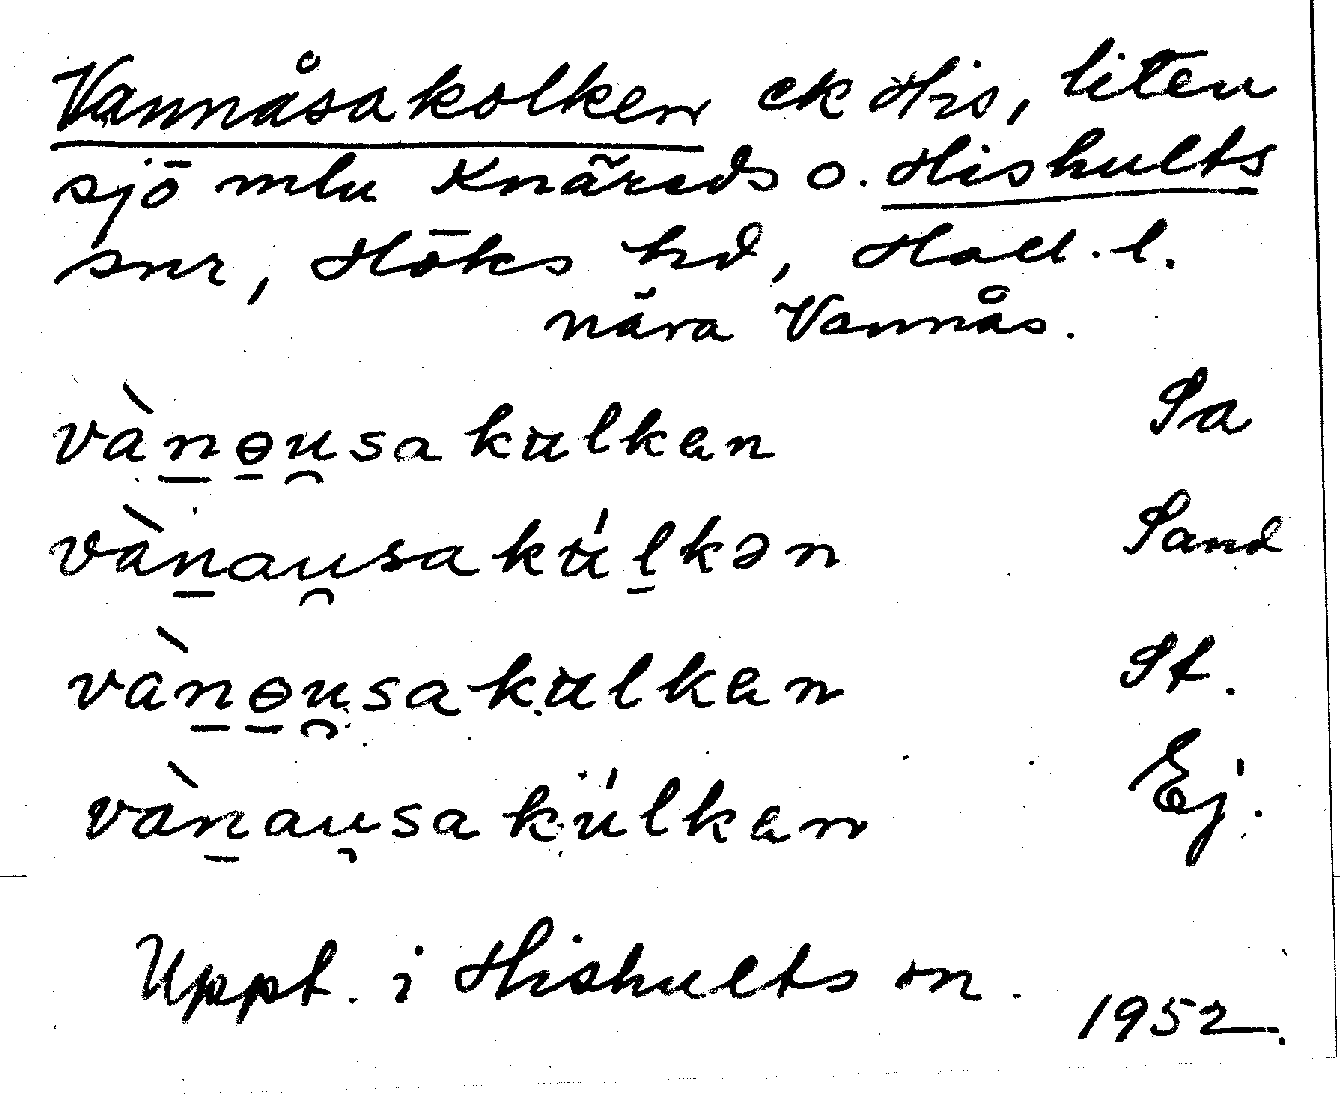 Vannåsakolken ek His, liten
sjö mlu Knäreds o. Hishults
snr, Höks hd, Hall. l.
nära Vannås.
vàn̲ɵ̲u̯sakulkan Sa
vàn̲au̯sakúl̲kən Sand
vàn̲ɵ̲u̯sakulkan St.
vàn̲au̯sakúlkan Ej.
Uppt. i Hishults sn.
1952.